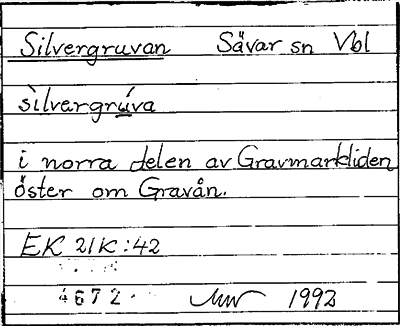 Silvergruvan Sävar sn Vbl
sìlvergrúva
i norra delen av Gravmarkliden
öster om Gravån.
EK 21K:42
4672
1992